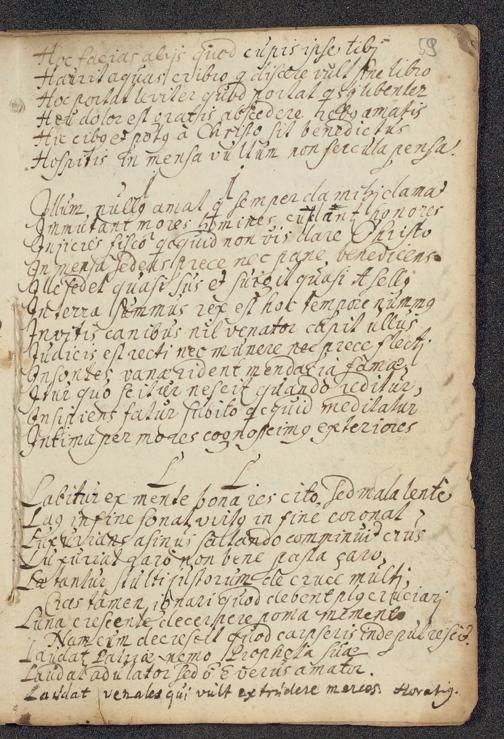 59
Hoc facias alijs quod cupis ipse tibj
Haurit aquas cribro q discere vult sine libro
Hoc portat leviter quod portat qsq libenter
Heu dolor est gratis abscedere rebq amatis
Hic cibq et potq à Christo sit benedictus
Hospitis in mensa vultum non fercula pensa.
I I
Illum nullq amat q semper da mihj clamat
Immutant mores homines cum dant honores
In mensa sedens prece nec pane benedicens
Ille sedet quasi sus et surgit quasi Asellq
In terra summus rex est hoc tempore nummq
Invitis canibus nil venator capit ullus
Iudicis est recti nec munere nec prece flectj
Insontes vanae rident mendacia famae
Itur quo scitur nescit quando reditur,
Insipient fatur subito qcquid meditatur
Intima per mores cognoscimq exteriores
L L
Labitur ex mente bona res cito, sed mala lente
Laq in fine sonat, virtq in fine coronat
Luxurians asinus saltando comminuit crus
Luxuriat raro non bene pasta caro,
Laetantur stulti justorum de cruce multj,
Cras tamen ignari quod debent cruciarj
Luna crescente decerpere poma memento
Nam cum decrescit quod carpseris inde putrescit.
Laudat Patriae nemo Propheta suae
Laudat adulator sed verus amator.
Laudat venales qui vult extrudere merces. Horatiq.